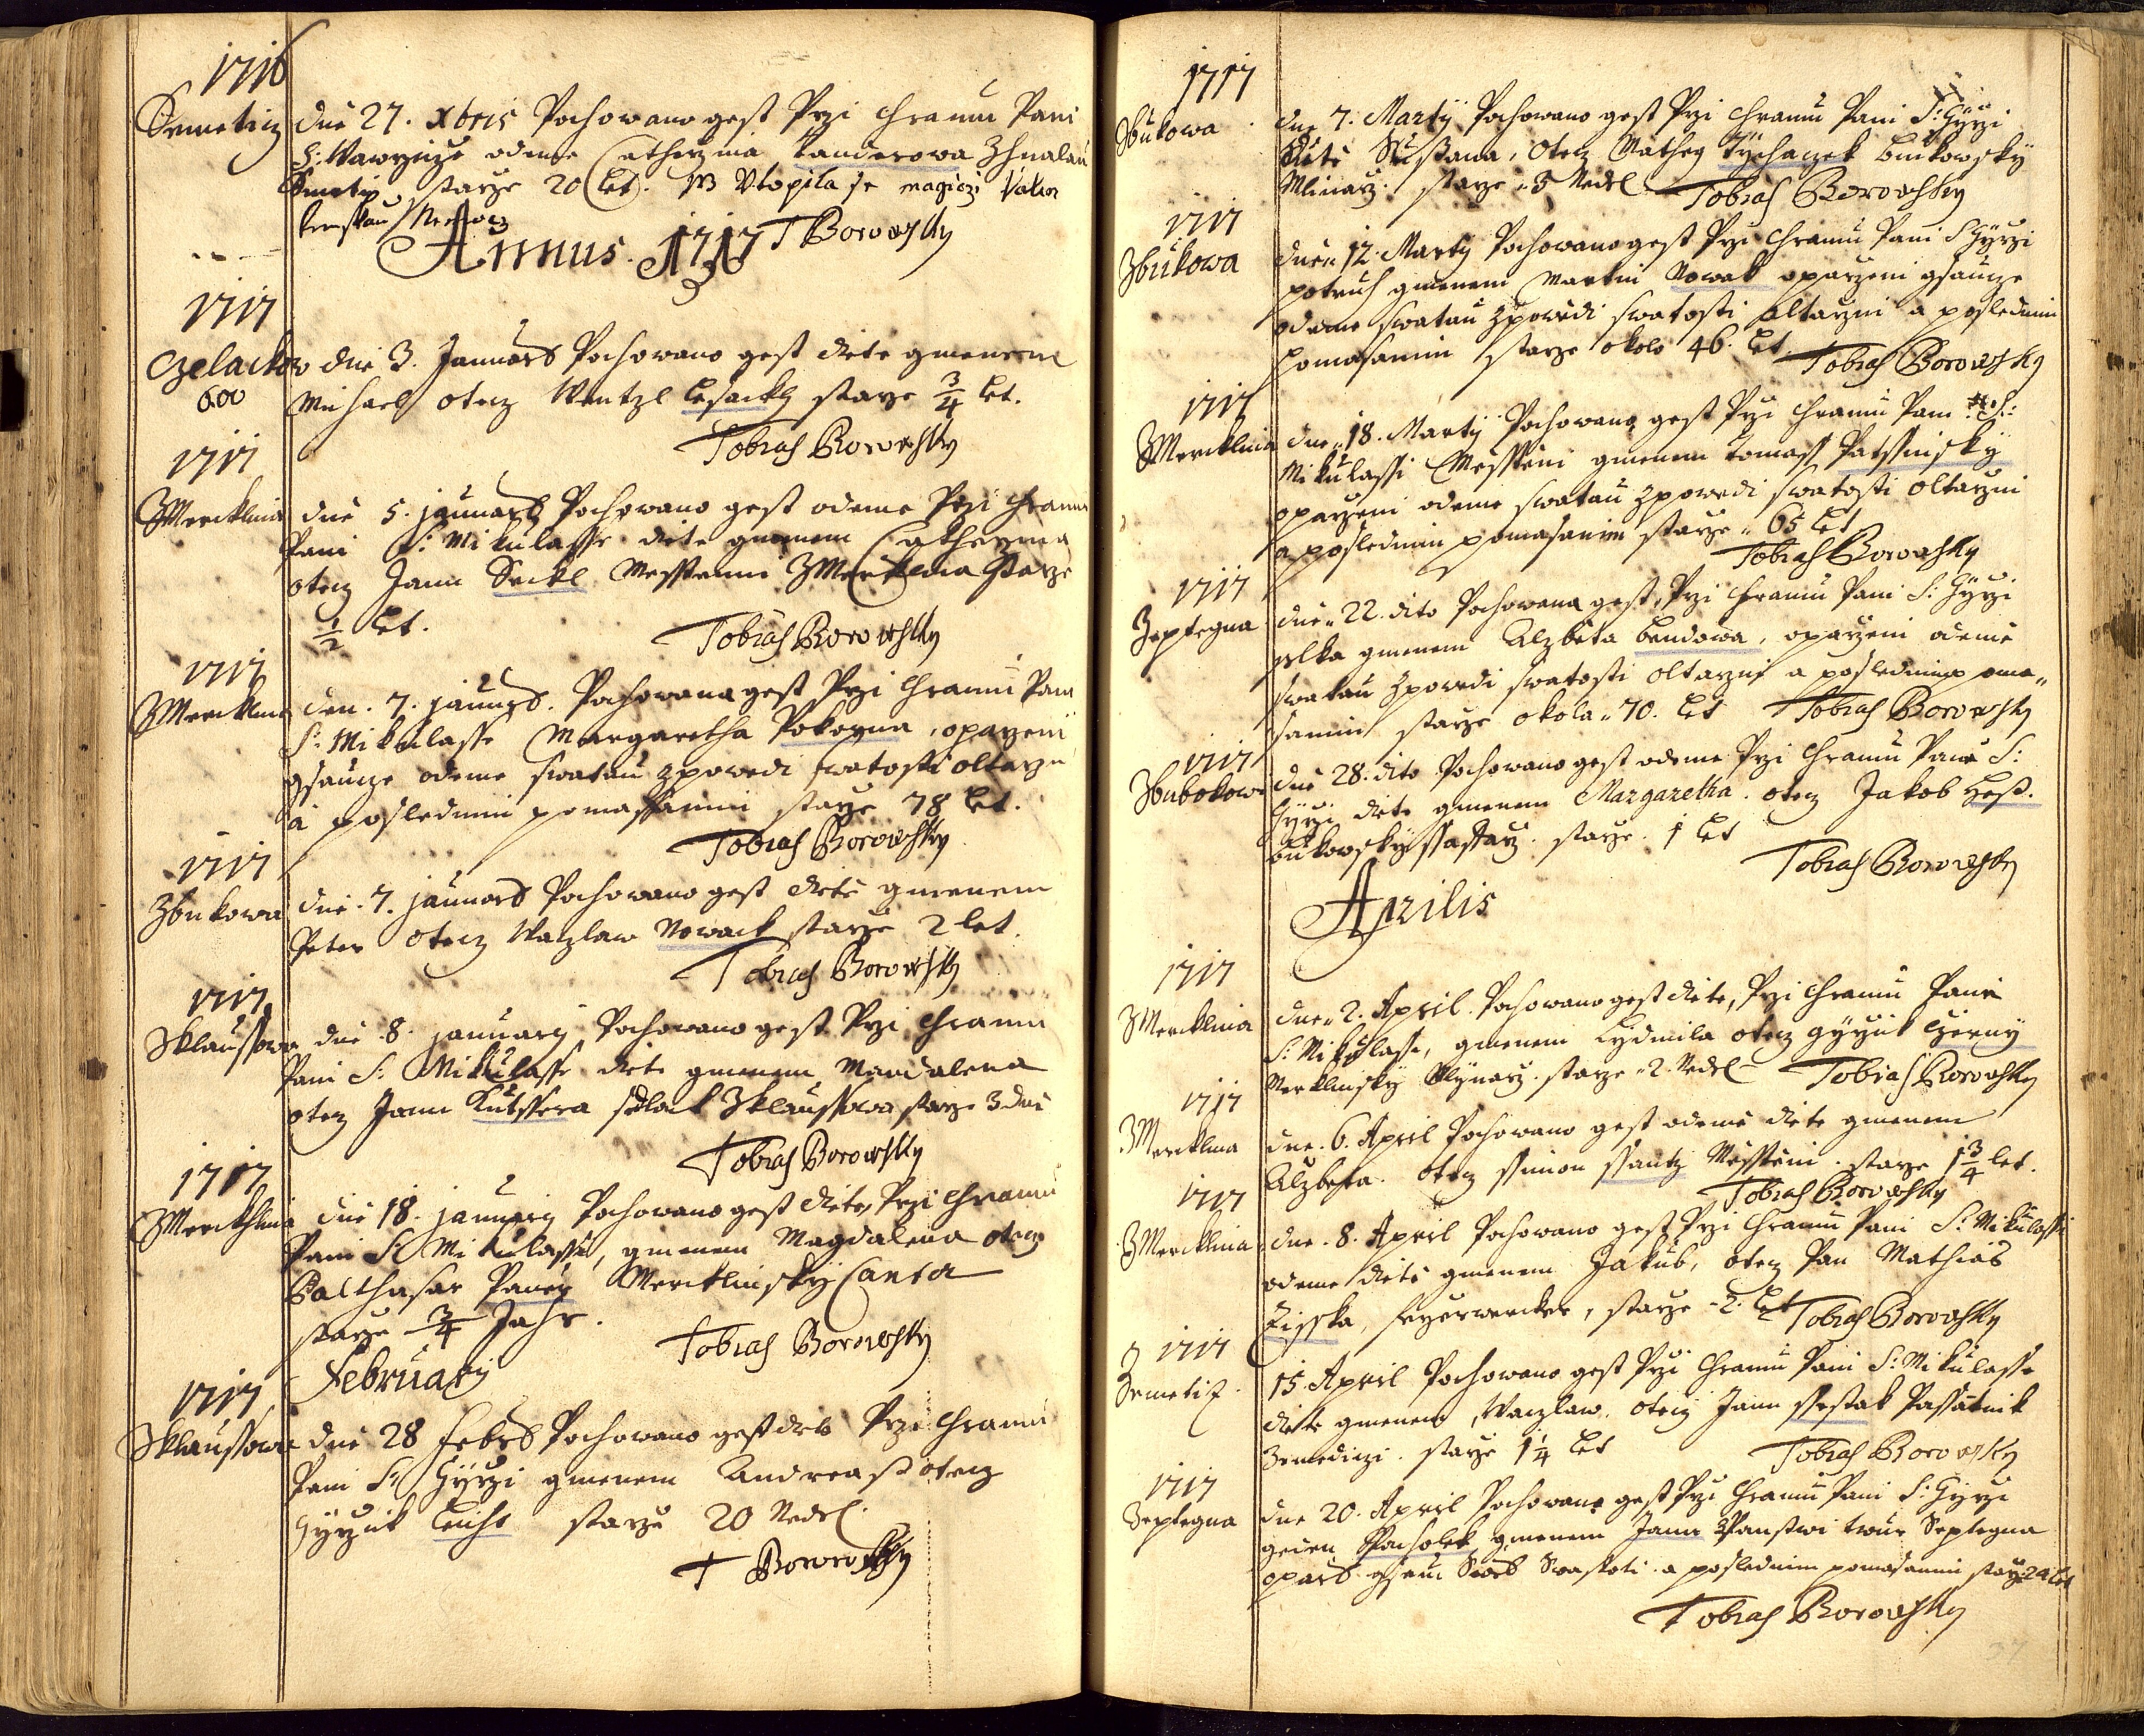 1716
Semetiz dne 27. Xbris Pochowano gest Przi Chramu Pani
S: Wawrzincze odemne Catherzina Panderowa
Smetiz starze 20 let. Utopila se
T Borowsky
Annus. 1717
1717
Czelakow dne 3. Januars Pochowano gest dite gmenem
Michael otecz Wentzl Lesackj starze 3/4 let.
Tobias Borowsky
1717
ZMercklina dne 5. januarj Pochowano gest odemne Przi Chramu
Pani S: Mikulasse dite gmenem Catherzina
otecz Jann Seckl Messtenin ZMerklina starze
1/2 let.
Tobias Borowsky
1717
ZMercklina den. 7. januars. Pochowana gest Przi Chramu Pana
S: Mikulasse Margaretha Pokorna, oparzeni
gsaucze odemne swatau zpowedi swatosti oltarzni
a poslednim pomassanim starze 78 let.
Tobias Borowsky
1717
Zbukowa dne. 7. januars Pochowano gest dite gmenem
Peter otecz Waczlaw Nowack starze 2 let.
Tobias Borowsky
1717
Zklaussowa dne .8. january Pochowano gest Przi Chramu
Pani S: Mikulasse dite gmenem Mandalena
otecz Jann Kutssera sedlack Zklaussowa starze 3 dni
Tobias Borowsky
1717
ZMercklina dne 18. january Pochowano gest dite Przi Chramu
Pani S: Mikulasse, gmenem Magdalena otecz
Balthasar Paner Mercklinskÿ Cantor
starze 3/4 Jahr.
Tobias Borowsky
February
1717
Zklaussowa dne 28 Febrs Pochowano gest dite Przi Chramu
Pani S: Gÿrzi gmenem Andreass otecz
Gÿrzik Leicht starze 20 Nedel.
T Borowsky
1717
Zbukowa dne 7. Martÿ Pochowano gest Przi Chramu Pani S: Gÿrzi
dite Susanna, otecz Matheg Tÿchaczek bukowskÿ
Mlinarz. starze 3 Nedel Tobias Borowsky
1717
Zbukowa dne 12. Martÿ Pochowano gest Przi Chramu Pani S Gÿrzi
gmenem Martin Nowak oparzeni gsaucze
odemne swatau zpowedi swatosti oltarzni a poslednim
pomasanim starze okolo 46. let
Tobias Borowsky
1717
ZMercklina dne 18. Martÿ Pochowano gest Przi Chramu Pani S:
Mikulassi Messtenin gmenem Tomass Patssinskÿ
oparzeni odemne swatau zpowedi swatosti oltarzni
a poslednim pomasanim starze 65 let
Tobias Borowsky
1717
Zeptegna dne 22. dito Pochowana gest, Przi Chramu Pani S: Gÿrzi
gmenem Alzbeta Bendowa, oparzeni odemne
swatau zpowedi swatosti oltarzni a poslednim poma„
sanim starze okola 70. let Tobias Borowsky
1717
Zbubokow dne 28. dito Pochowano gest odemne Przi Chramu Pana S:
Gÿrzi dite gmenem Margaretha. otecz Jakob Hess.
bukowskÿ starze. 1 let
Tobias Borowsky
Aprilis
1717
ZMercklina dne 2. April. Pochowano gest dite, Przi Chramu Pani
S: Mikulasse, gmenem Lydmila otecz Gÿrzik Czernÿ
Merklinskÿ Mlÿnarz. starze 2. Nedel Tobias Borowsky
1717
ZMercklina dne. 6. April Pochowano gest odemne dite gmenem
Alzbeta. otecz ssimon ssantz Messtenin. starze 1 3/4 let.
Tobias Borowsky
1717
ZMercklina dne. 8. April Pochowano gest Przi Chramu Pani S: Mikulassi
odemne dite gmenem Jakub, otecz Pan Mathias
Zisska, feyerwercker, starze 2. let Tobias Borowsky
1717
Zemetiz. 15. April Pochowano gest Przi Chramu Pani S: Mikulasse
dite gmenem, Waczlaw. otecz Jann ssestak Passatnik
Zemediczi. starze 1 1/4 let
Tobias Borowsky
1717
Zeptegna dne 20. April Pochowano gest Przi Chramu Pani S: Gÿrzi
geden Pacholek gmenem Jann Septegna
a poslednim pomasanim starze 24 let
Tobias Borowsky
37